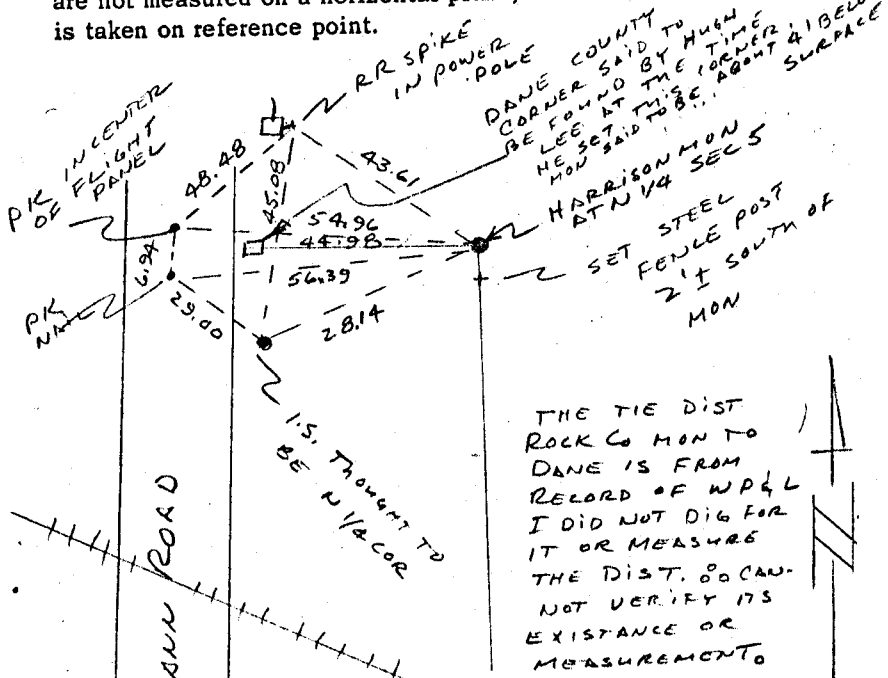 is taken on reference point.
RR SPIKE
IN POWER
POLE
DANE COUNTY
CORNER SAID TO
BE FOUND BY HUGH
LEE AT THE TIME
HE SET THIS CORNER.
MON SAID TO BE ABOUT 4' BELOW
SURFACE
PK IN CENTER
OF FLIGHT
PANEL
48.48
45.08
43.61
HARRISON MON
AT N 1/4 SEC 5
54.96
44.98
56.39
6.94
SET STEEL
FENCE POST
2'± SOUTH OF
MON
PK
NAIL
29.00
28.14
I.S. THOUGHT TO
BE N 1/4 COR
THE TIE DIST
ROCK CO MON TO
DANE IS FROM
RECORD OF WP&L
I DID NOT DIG FOR
IT OR MEASURE
THE DIST. ∴ CAN-
NOT VERIFY ITS
EXISTANCE OR
MEASUREMENT.
ANN ROAD
N